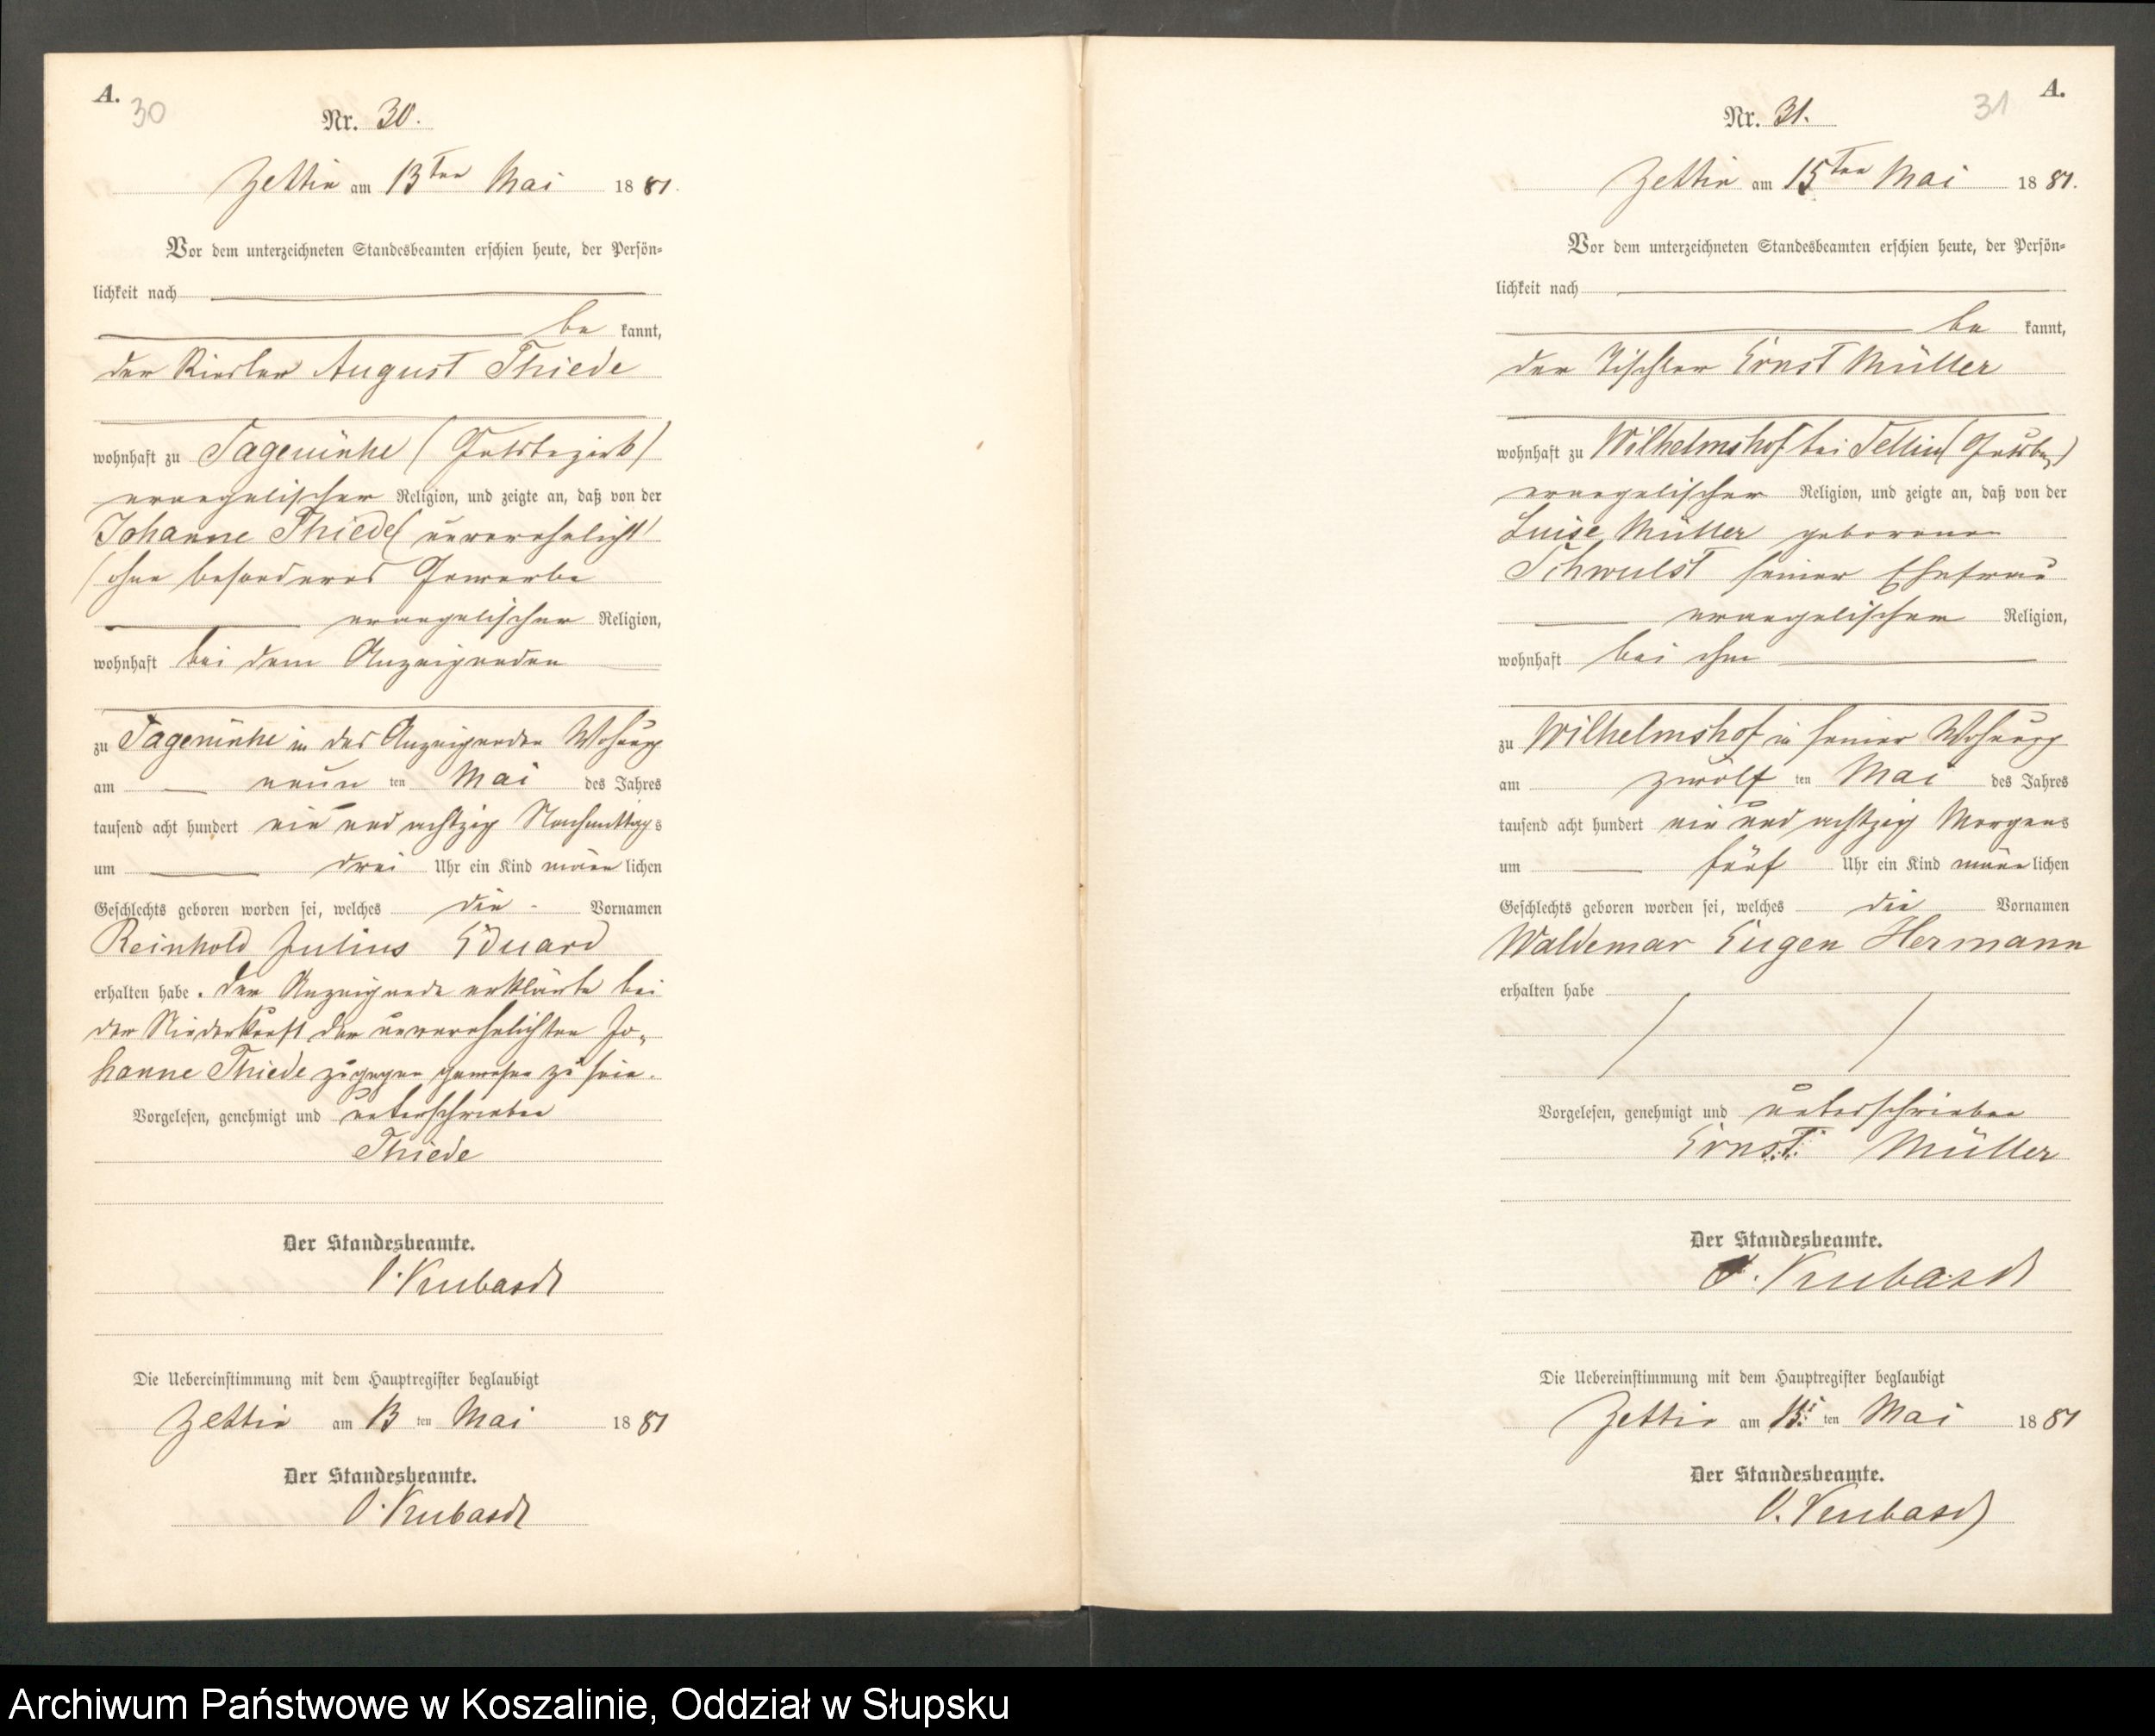 A.
30
Nr. 30.
Zettin am 13ten Mai 1881.
Vor dem unterzeichneten Standesbeamten erschien heute, der Persön-
lichkeit nach
be kannt,
der August Thiede
wohnhaft zu (Gutsbezirk)
evangelischer Religion, und zeigte an, daß von der
Johanne Thiede (unverehelicht)
(ohne besonderes Gewerbe
evangelischer Religion,
wohnhaft bei dem Anzeigenden
zu in des Anzeigenden Wohnung
am neun ten Mai des Jahres
tausend acht hundert ein und achtzig Nachmittags
um drei Uhr ein Kind männ lichen
Geschlechts geboren worden sei, welches die - Vornamen
Reinhold Julius Eduard
erhalten habe. Der Anzeigende erklärte bei
der Niederkunft der unverehelichten Jo-
hanne Thiede zugegen gewesen zu sein.
Vorgelesen, genehmigt und unterschrieben
Thiede
Der Standesbeamte.
Die Uebereinstimmung mit dem Hauptregister beglaubigt
Zettin am 13 ten Mai 1881
Der Standesbeamte.
A.
31
Nr. 31.
Zettin am 15ten Mai 1881.
Vor dem unterzeichneten Standesbeamten erschien heute, der Persön-
lichkeit nach
be kannt,
der Tischler Ernst Müller
wohnhaft zu Wilhelmshof bei (Gutsbez)
evangelischer Religion, und zeigte an, daß von der
Luise Müller geborenen
Schwulst seiner Ehefrau
evangelischer Religion,
wohnhaft bei ihm
zu Wilhelmshof in seiner Wohnung
am zwölf ten Mai des Jahres
tausend acht hundert ein und achtzig Morgens
um fünf Uhr ein Kind männ lichen
Geschlechts geboren worden sei, welches die Vornamen
Waldemar Eugen Hermann
erhalten habe
Vorgelesen, genehmigt und unterschrieben
Ernst Müller
Der Standesbeamte.
Die Uebereinstimmung mit dem Hauptregister beglaubigt
Zettin am 15 ten Mai 1881
Der Standesbeamte.
Archiwum Państwowe w Koszalinie, Oddział w Słupsku